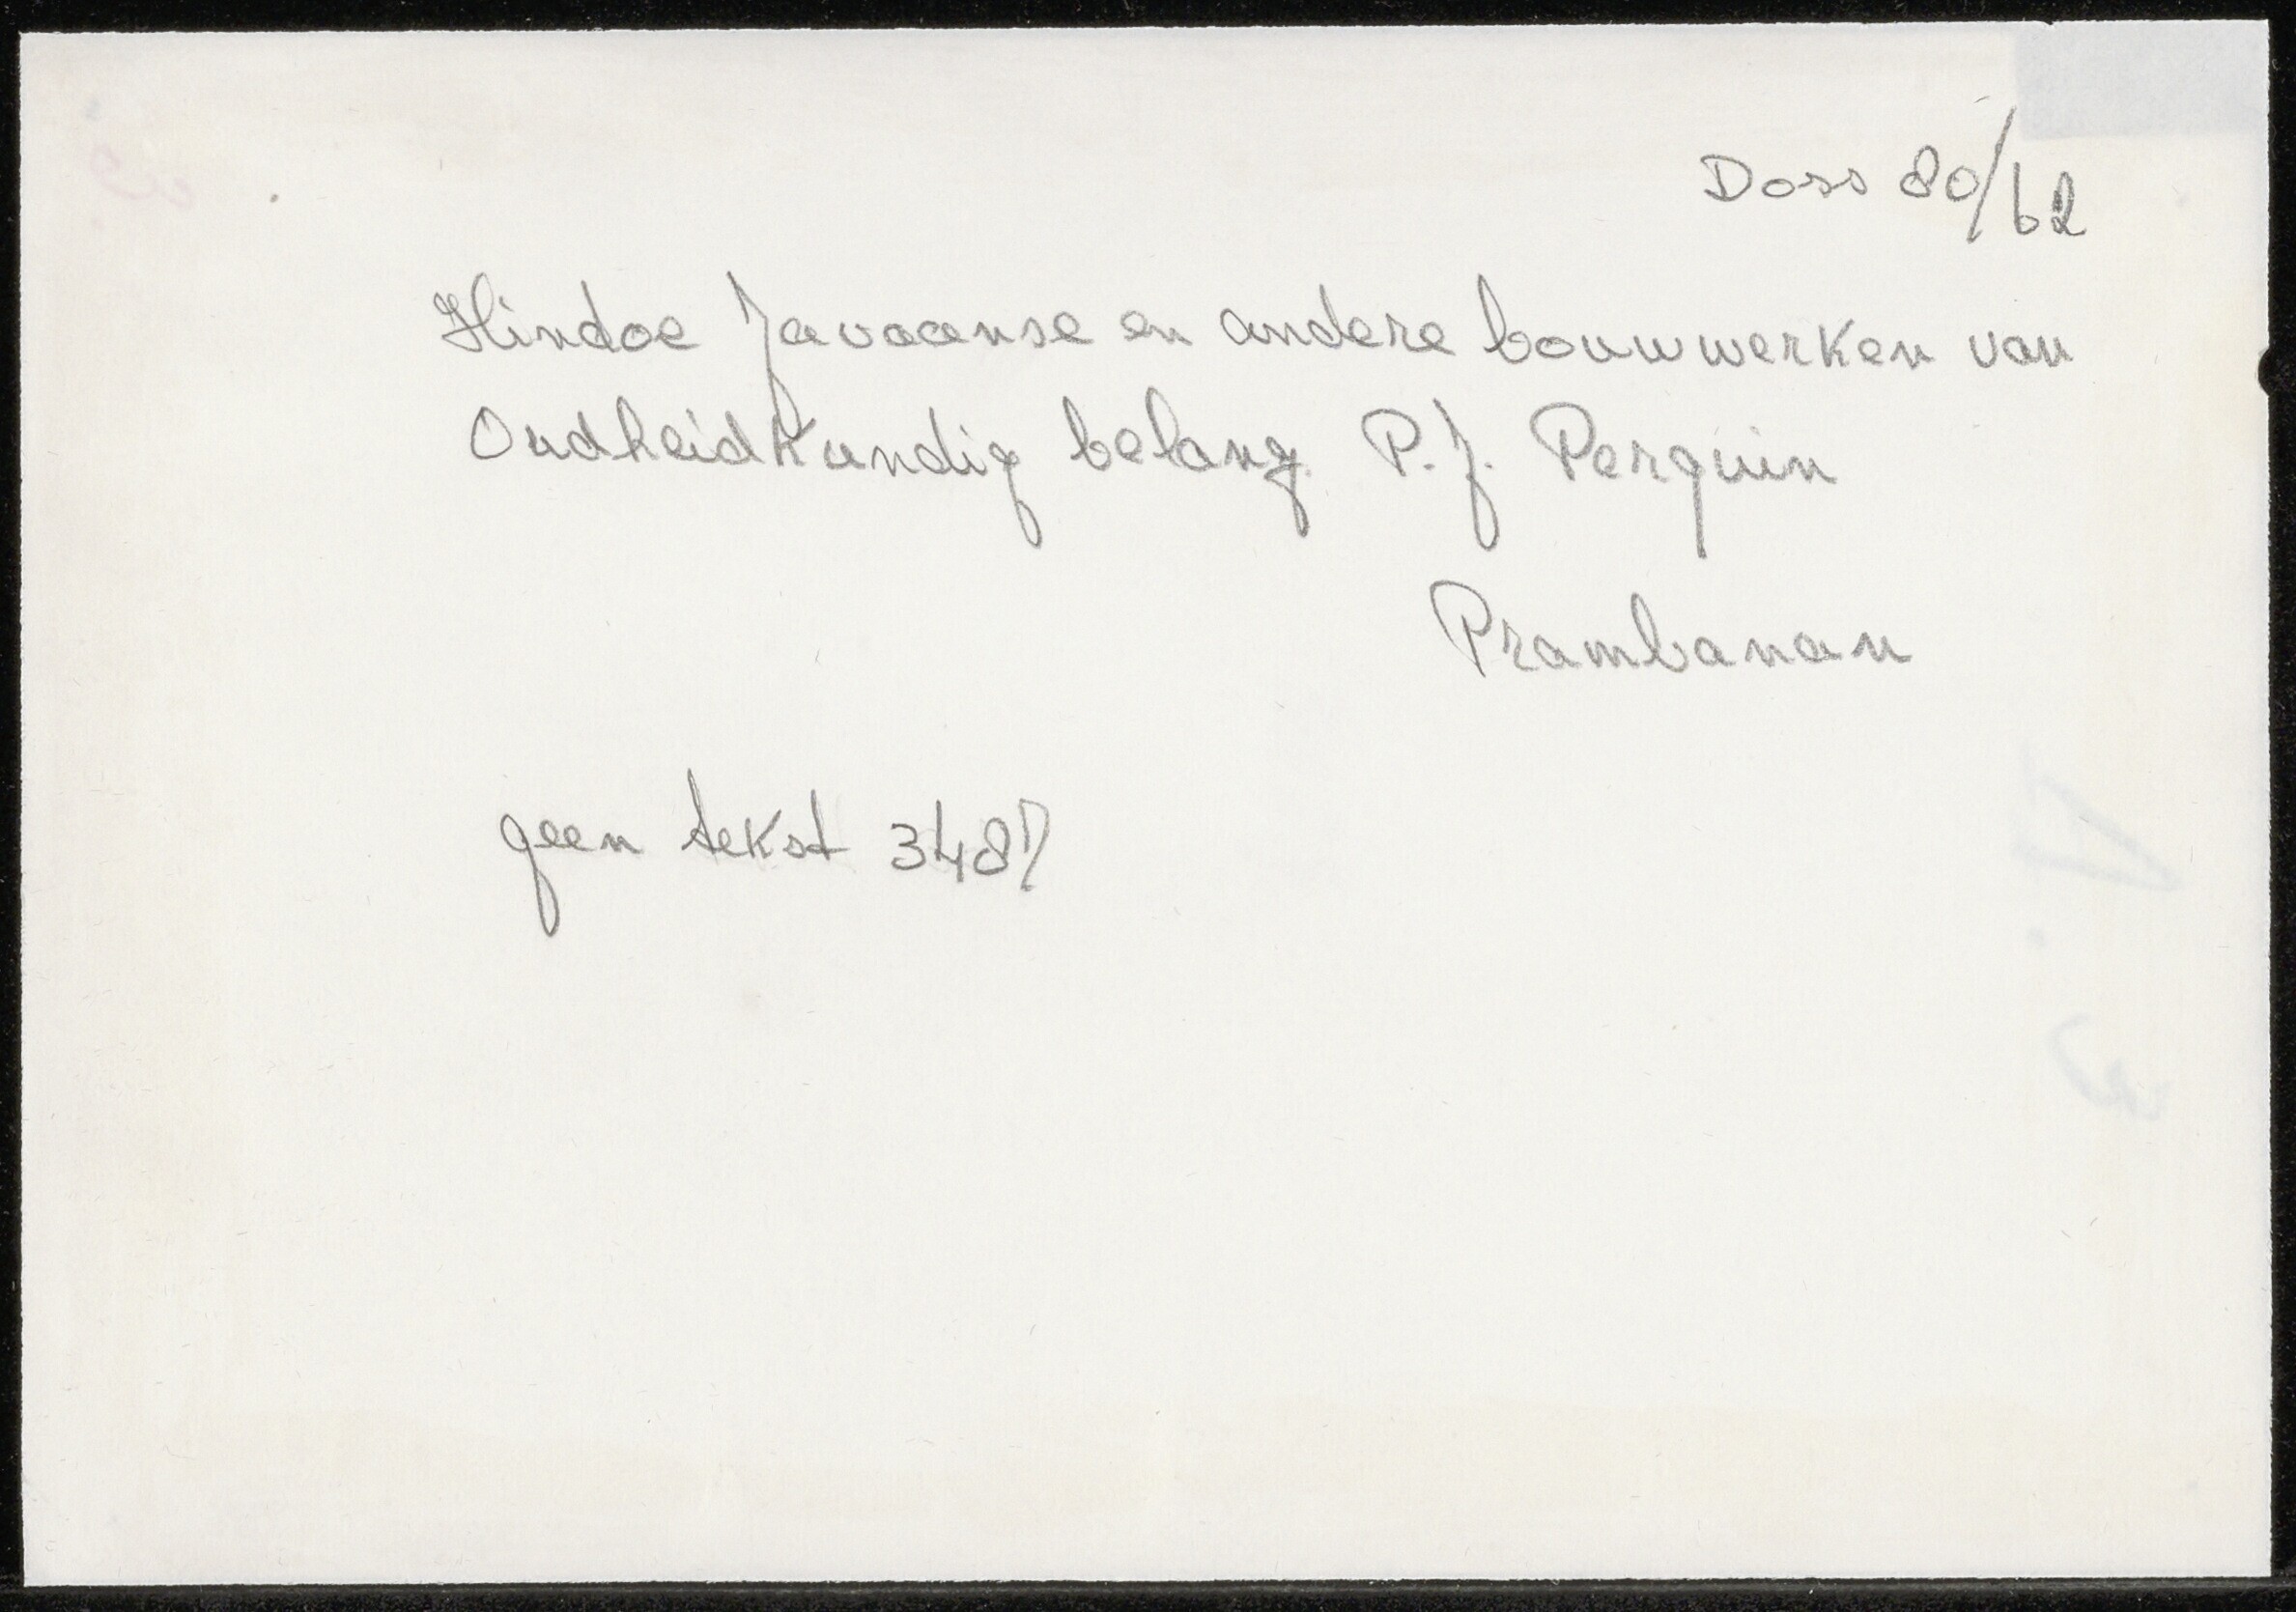 Doss 80/62
Hindoe Javaanse en andere bouwwerken van
Oudheidkundig belang. P.J. Perquin
Prambanan
geen tekst 3487